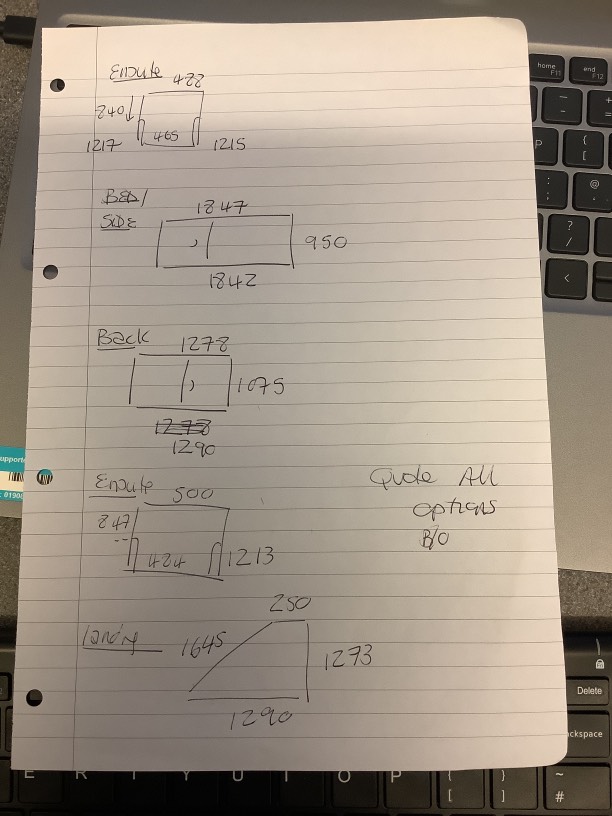 Ensuite 422
240
1217 465 1215
BED/
SIDE
1847
950
1842
Back 1278
1075
1278
1290
Ensuite 500
247
424 1213
Quote All
options
B/O
250
Landing 1645
1273
1290
home
F11
end
F12
Delete
ckspace
E R T Y U I O P